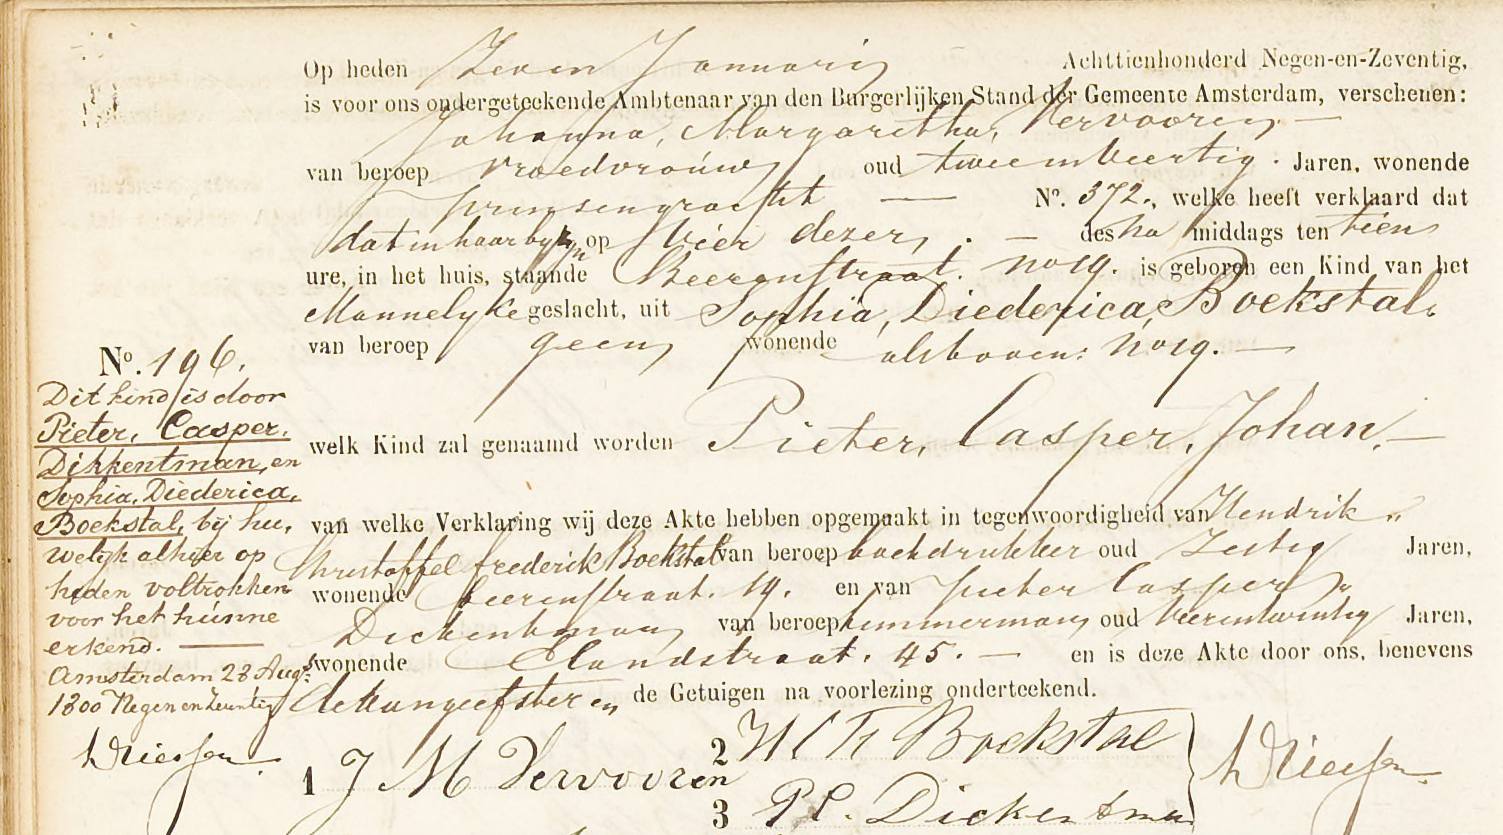 Op heden Zeven Januarij Achttienhonderd Negen-en-Zeventig,
is voor ons ondergeteekende Ambtenaar van den Burgerlijken Stand der Gemeente Amsterdam, verschenen:
Johanna, Margaretha, Vervooren
van beroep vroedvrouw oud twee en veertig. Jaren, wonende
Prinsengracht — No. 372., welke heeft verklaard dat
dat in haar byzyn op Vier dezer, . — des na middags ten tien
ure, in het huis, staande Beerenstraat. no 19. is geboren een Kind van het
Mannelyke geslacht, uit Sophia, Diederica, Boekstal.
van beroep geen, wonende als boven: no 19. —
welk Kind zal genaamd worden Pieter, Casper, Johan, —
van welke Verklaring wij deze Akte hebben opgemaakt in tegenwoordigheid van Hendrik „
Christoffel Frederik Boekstal van beroep boekdrukker oud Zestig Jaren,
wonende Beerenstraat. 19. en van Pieter Casper „
Dickentman van beroep timmerman, oud vierentwintig Jaren,
wonende Elandstraat. 45. — en is deze Akte door ons, benevens
de Aangeefster en de Getuigen na voorlezing onderteekend.
1 J M Vervooren
2 H C F Boekstal
3 P C. Dickentman
No. 196.
Dit kind is door
Pieter, Casper,
Dikkentman, en
Sophia, Diederica,
Boekstal, bij hu„
welijk alhier op
heden voltrokken
voor het hunne
erkend. —
Amsterdam 28 Augs:
1800 Negen en Zeventig